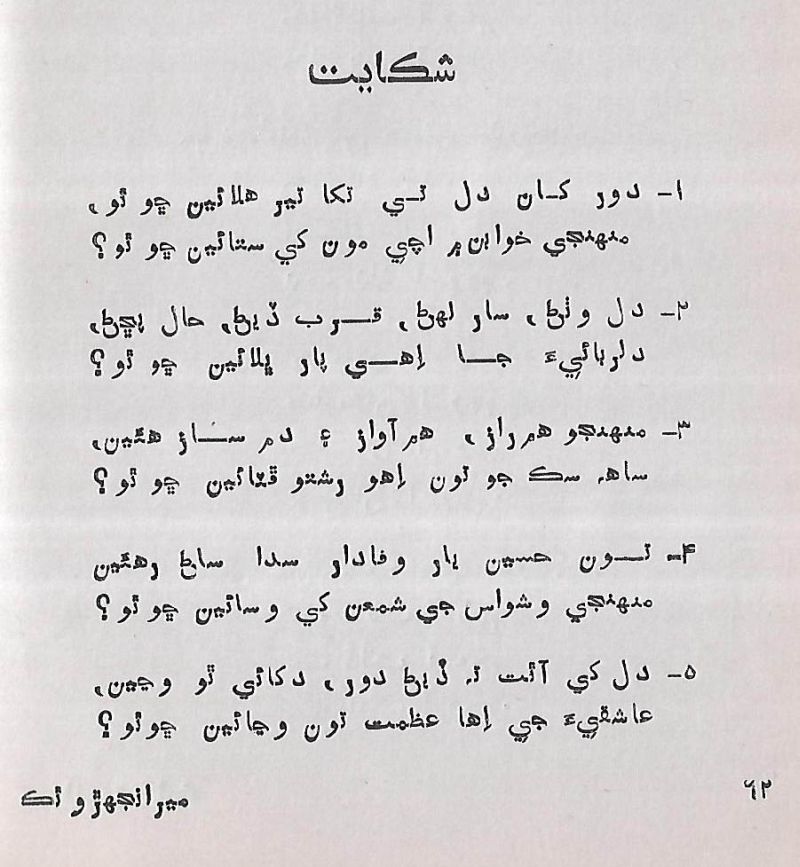 شڪايت
۱- دور کان دل تي تکا تير هلائين ڇو ٿو،
منهنجي خوابن ۾ اچي مون کي ستائين ڇو ٿو؟
۲- دل وٺڻ، سار لهڻ، قرب ڏيڻ، حال پڇڻ،
دلربائيءَ جا اِهي پار ڀلائين ڇو ٿو؟
۳- منهنجو همراز، هم آواز ۽ دم ساز هئين،
ساهه سڪ جو تون اِهو رشتو ڦٽائين ڇو ٿو؟
۴- تون حسين يار وفادار سدا ساڻ رهئين
منهنجي وشواس جي شمعن کي وسائين ڇو ٿو؟
۵- دل کي آٿت نه ڏيڻ دور، دکائي ٿو وڃين،
عاشقيءَ جي اِها عظمت تون وڃائين ڇو ٿو؟
۶۲
ميرانجهڙو ٿڪ